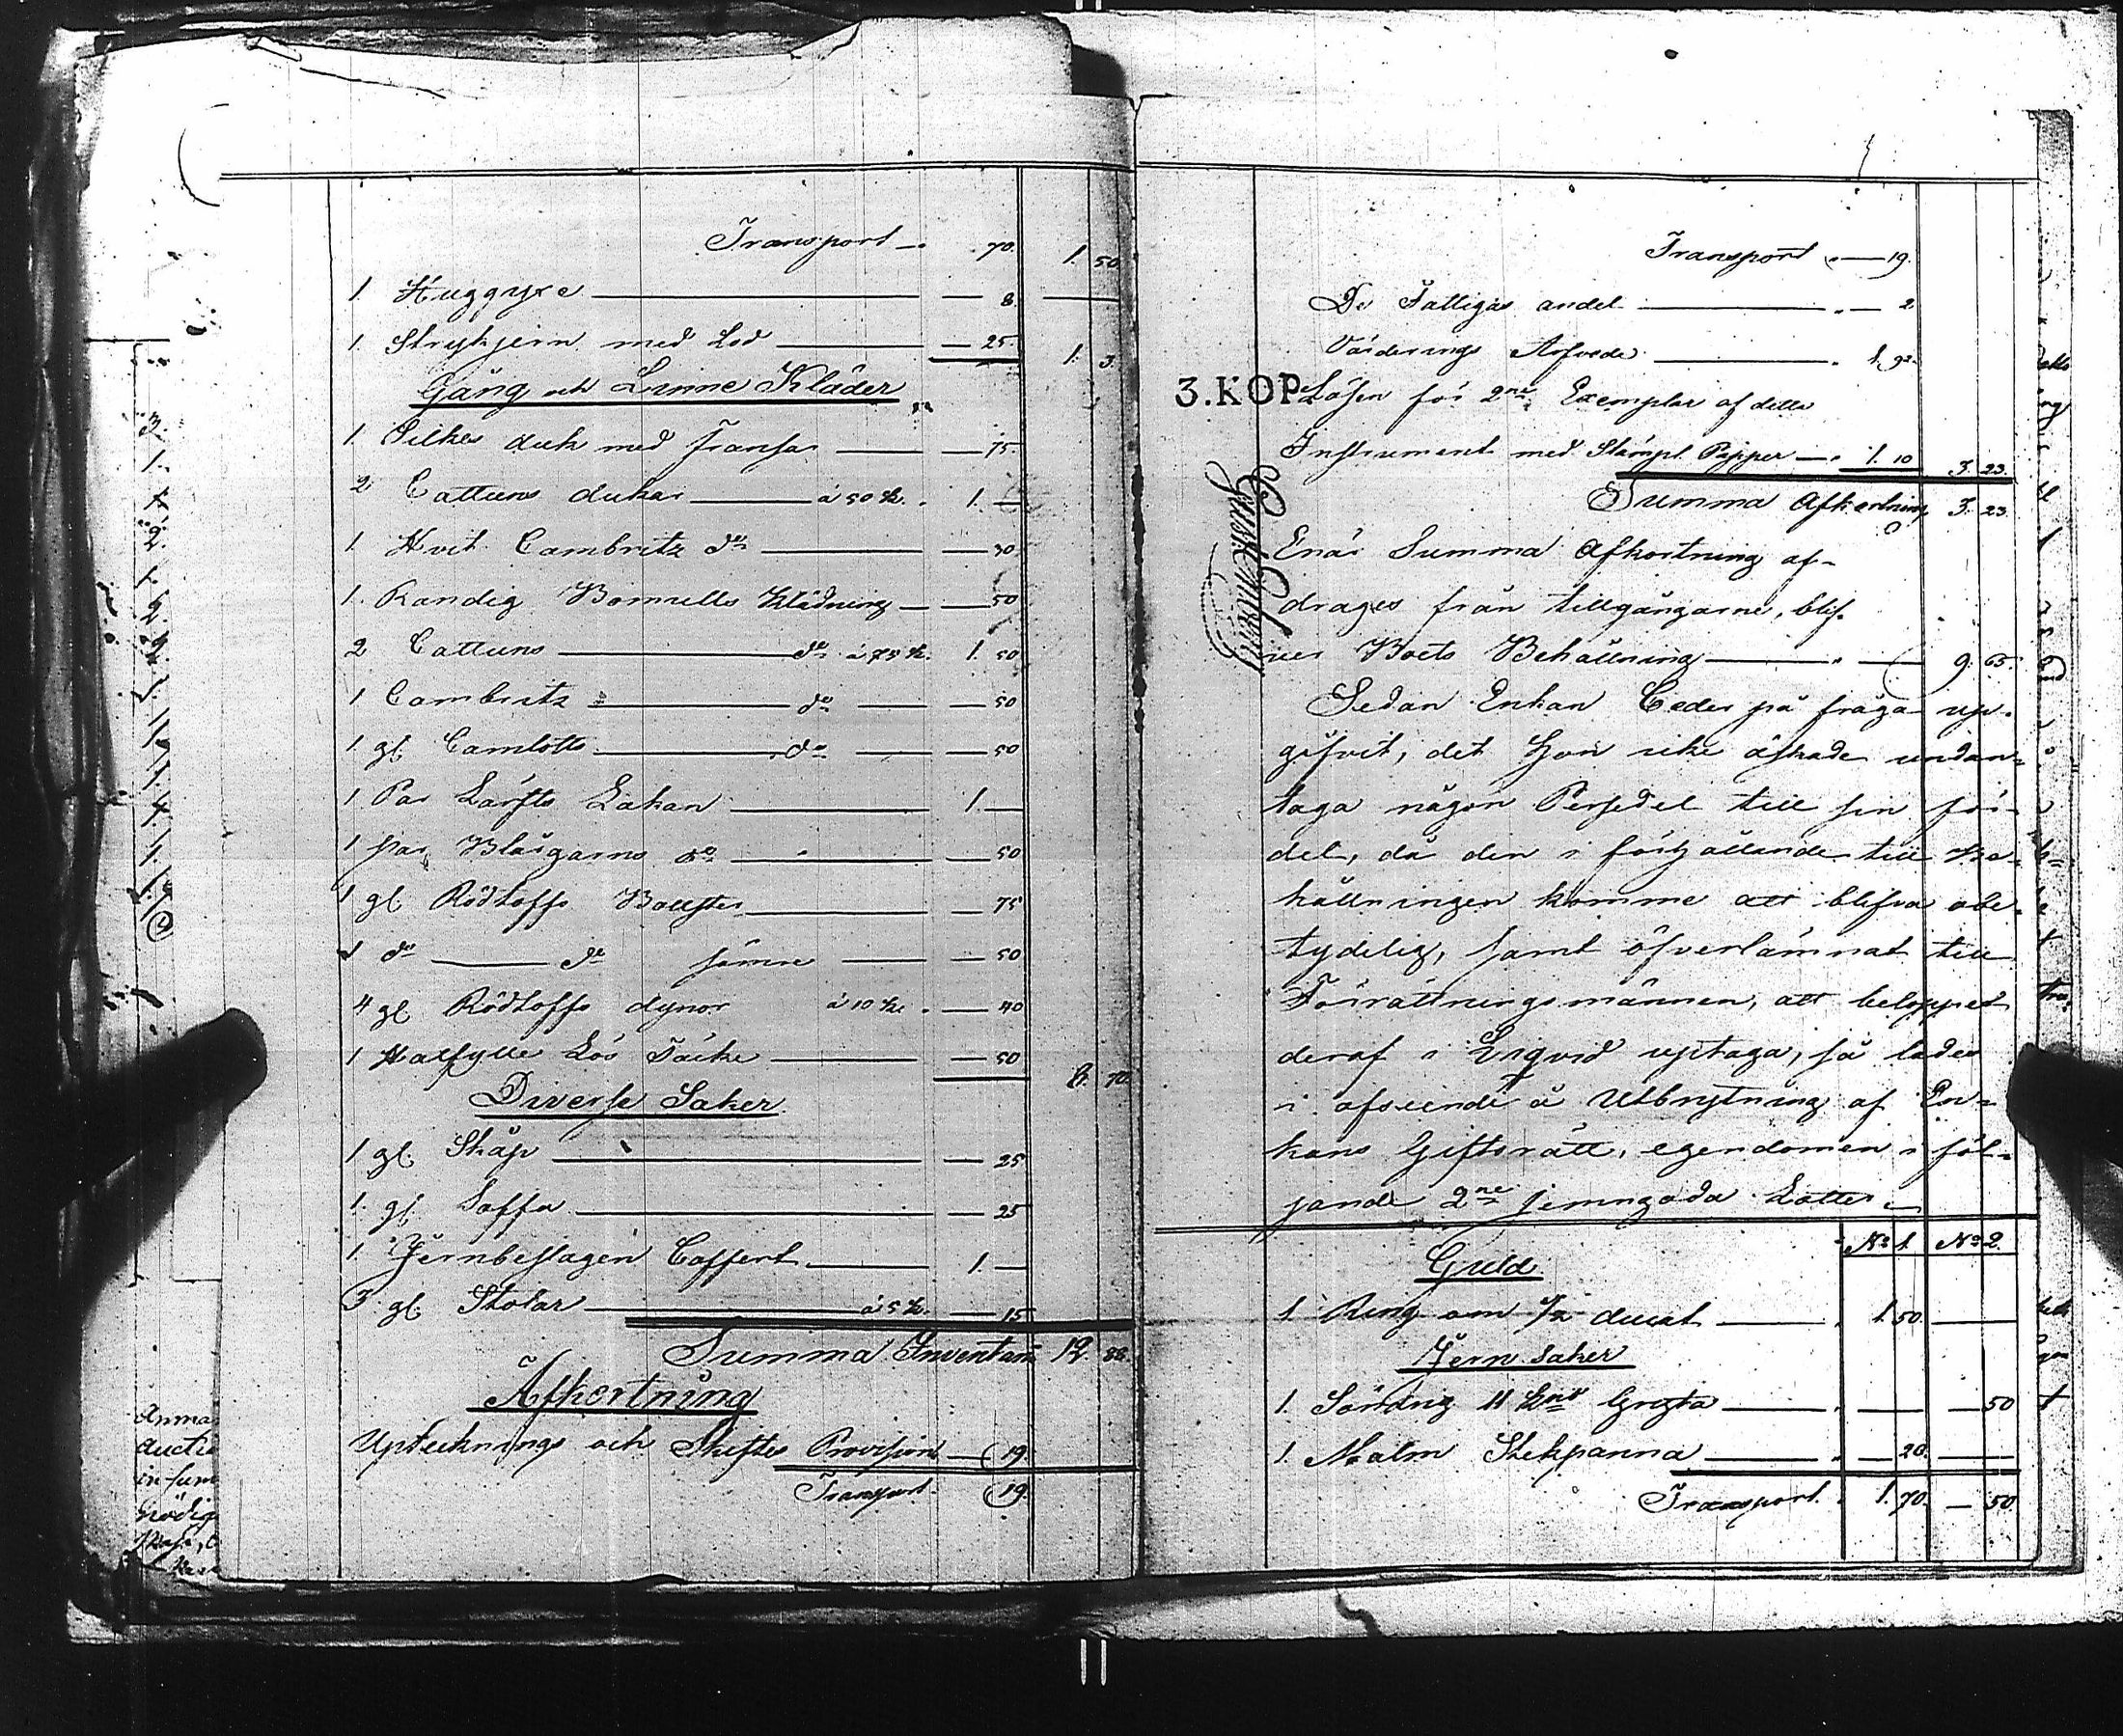 Transport 70. 1. 50
1. Huggyxe — 8.
1. Strykjern med Lod — 25. 1. 3.
Gång och Linne Kläder
1. Silkes duk med Fransar — 75.
2 Cattuns dukar à 50 k. 1. —
1. Hvit Cambritz do — 30
1. Randig Bomulls Klädning — 50
2 Cattuns do à 75 k. 1. 50
1 Cambritz do — 50
1 gl. Camlotts do — 50
1 Par Lärfts Lakan 1. —
1 par Blårgarns do — 50
1 gl. Rödtoffs Bollster — 75
1 do do sämre — 50
4 gl. Rödtoffs dynor à 10 k. — 40
1 Halfylle Lös Täcke — 50
8. 70.
Diverse Saker
1 gl. Skåp — 25
1. gl. Soffa — 25
1. Jernbeslagen Coffert 1. —
3 gl. Stolar à 5 k. — 15
Summa Inventarii 12. 88.
Afkortning
Uptecknings och Skiftes Provision — 19.
Transport 19.
Transport — 19.
De Fattigas andel — 2
Värderings Arfvode 1. 92
3.KOP
Lösen för 2ne Exemplar af detta
Instrument med Stämpl. Papper 1. 10 3. 23.
Summa Afkortning 3. 23.
Enär Summa Afkortning af-
drages från tillgångarne, blif-
ver Boets Behållning 9. 65.
Sedan Enkan Ceder på fråga up-
gifvit, det hon icke äskade undan-
taga någon Persedel till sin för-
del, då den i förhållande till Be-
hållningen komme att blifva obe-
tydelig, samt öfverlämnat till
Förrättningsmännen, att beloppet
deraf i Liqvid uptaga, så lades
i afseende å Utbrytning af En-
kans Giftorätt, egendomen i föl-
jande 2ne jemngoda Lotter
No 1. No 2.
Guld
1 Ring om 1/2 ducat 1. 50 —
Jern saker
1. Söndrig 11 Gryta — 50
1. Malm Stekpanna — 20. —
Transport 1. 70. — 50